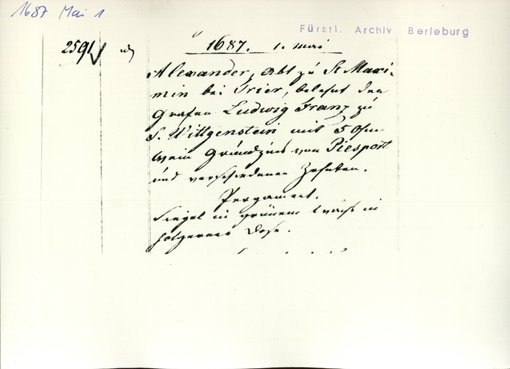 1687 Mai 1
Fürstl. Archiv Berleburg
2591
1687. 1. Mai
Alexander, Abt zu St Maxi-
min bei Trier, belehnt den
Grafen Ludwig Franz zu
S. Wittgenstein mit 5 Ohm
Wein Grundzins von Piesport
und verschiedenen Zehnten.
Pergament.
Siegel in grünem Wachs in
hölzerner Dose.